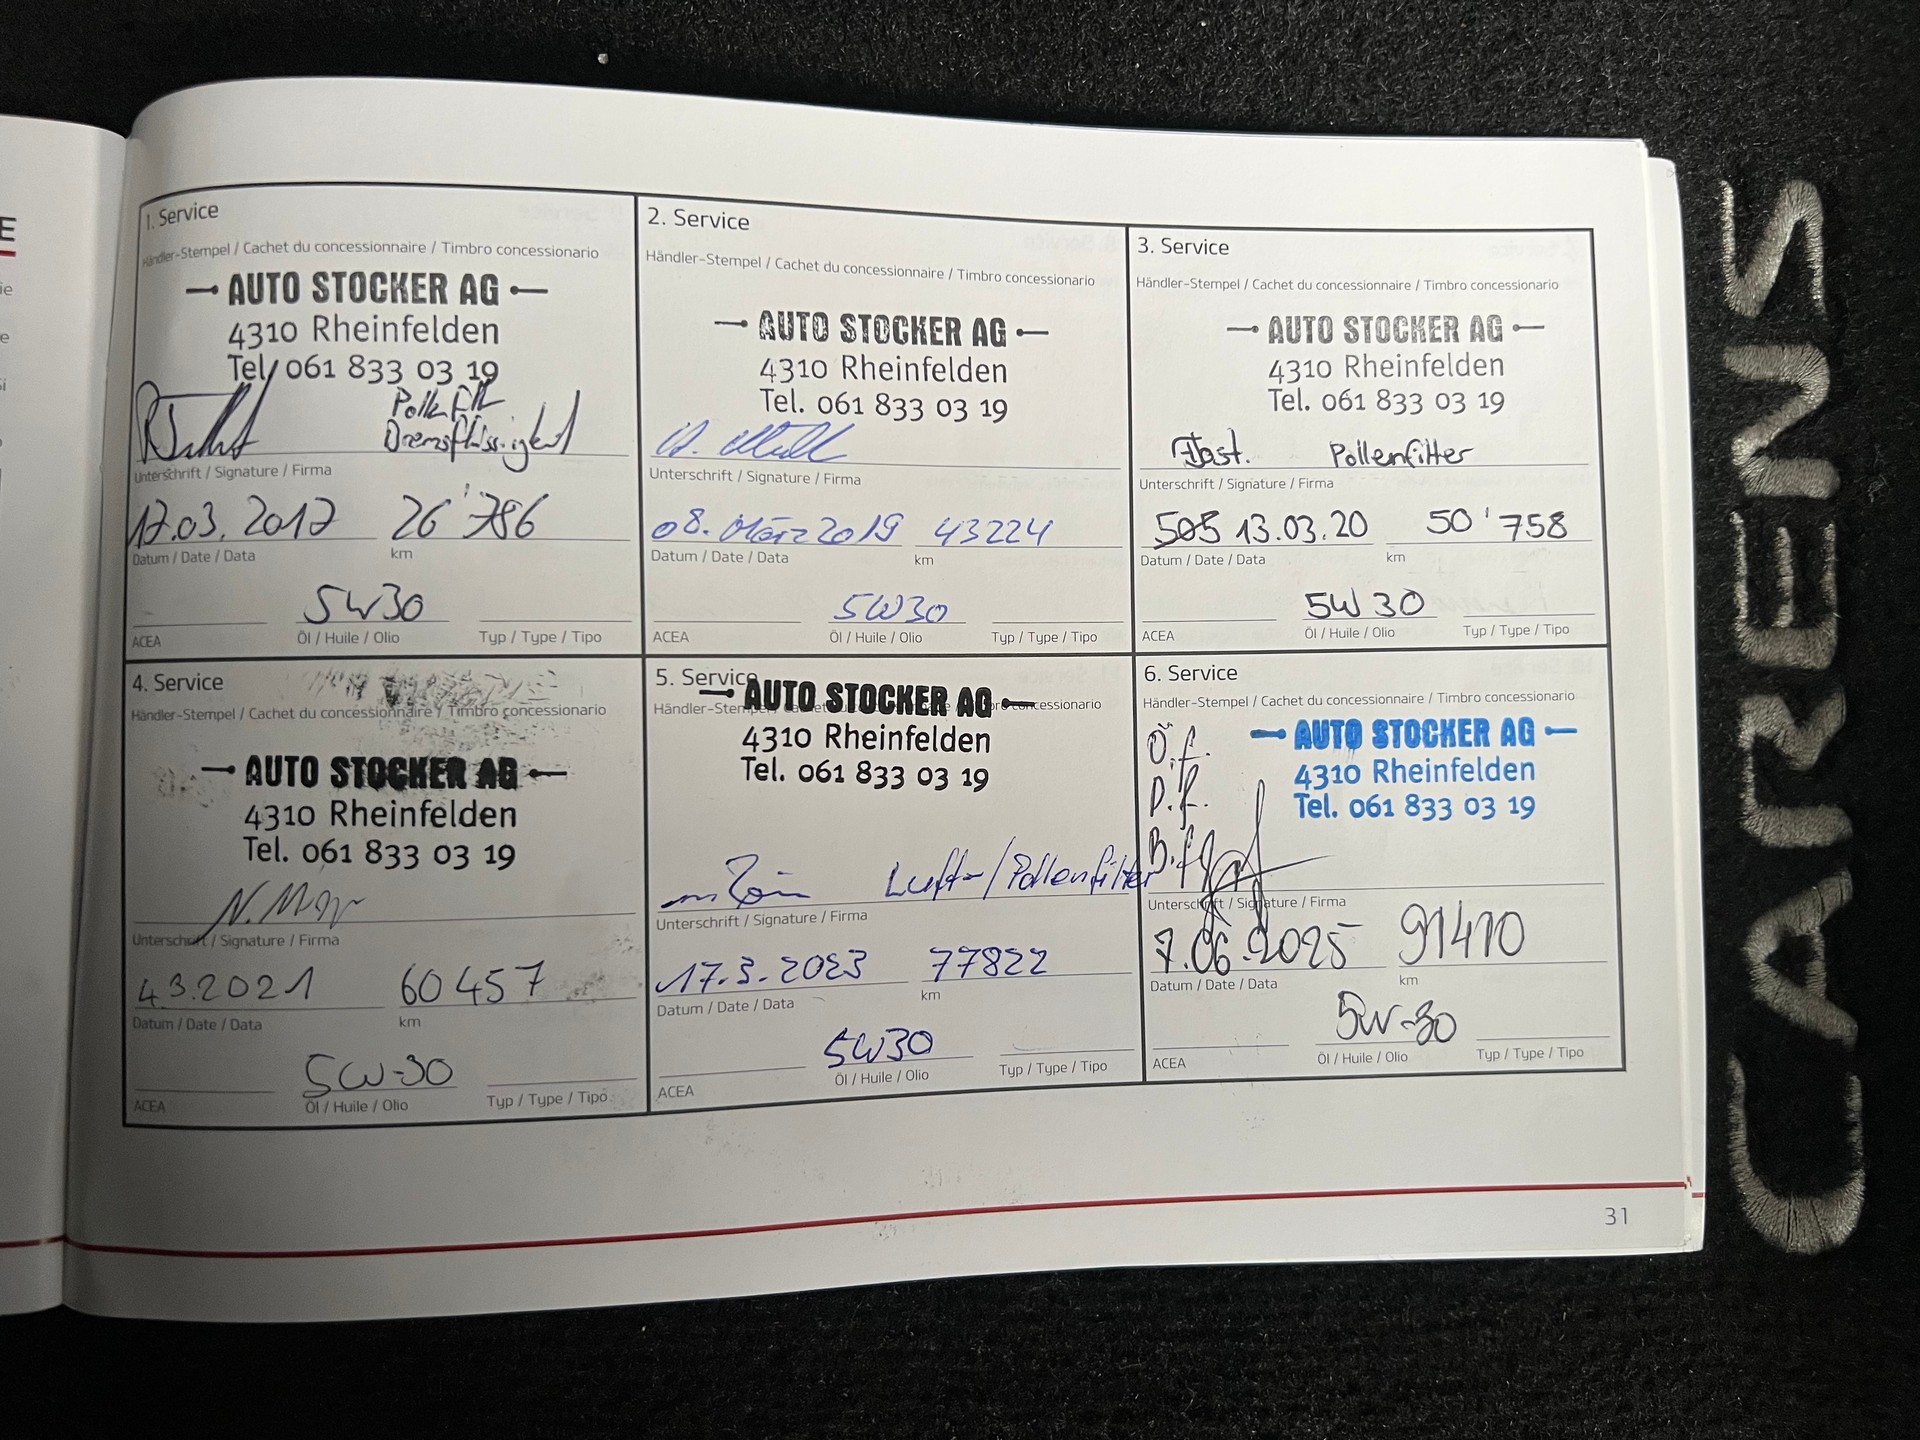 E
ie
e
si
1. Service
Händler-Stempel / Cachet du concessionnaire / Timbro concessionario
AUTO STOCKER AG
4310 Rheinfelden
Tel. 061 833 03 19
Bremsflüssigkeit
Unterschrift / Signature / Firma
17.03.2017 26'786
Datum / Date / Data km
5W30
ACEA Öl / Huile / Olio Typ / Type / Tipo
2. Service
Händler-Stempel / Cachet du concessionnaire / Timbro concessionario
AUTO STOCKER AG
4310 Rheinfelden
Tel. 061 833 03 19
Unterschrift / Signature / Firma
08. März 2019 43224
Datum / Date / Data km
5W30
ACEA Öl / Huile / Olio Typ / Type / Tipo
3. Service
Händler-Stempel / Cachet du concessionnaire / Timbro concessionario
AUTO STOCKER AG
4310 Rheinfelden
Tel. 061 833 03 19
Pollenfilter
Unterschrift / Signature / Firma
13.03.20 50'758
Datum / Date / Data km
5W30
ACEA Öl / Huile / Olio Typ / Type / Tipo
4. Service
Händler-Stempel / Cachet du concessionnaire / Timbro concessionario
AUTO STOCKER AG
4310 Rheinfelden
Tel. 061 833 03 19
Unterschrift / Signature / Firma
4.3.2021 60457
Datum / Date / Data km
5W-30
ACEA Öl / Huile / Olio Typ / Type / Tipo
5. Service
AUTO STOCKER AG
4310 Rheinfelden
Tel. 061 833 03 19
Luft-/Pollenfilter
Unterschrift / Signature / Firma
17.3.2023 77822
Datum / Date / Data km
5W30
ACEA Öl / Huile / Olio Typ / Type / Tipo
6. Service
Händler-Stempel / Cachet du concessionnaire / Timbro concessionario
AUTO STOCKER AG
4310 Rheinfelden
Tel. 061 833 03 19
Ö.f.
P.f.
B.f.
Unterschrift / Signature / Firma
7.06.2025 91410
Datum / Date / Data km
5W-30
ACEA Öl / Huile / Olio Typ / Type / Tipo
31
CARENS